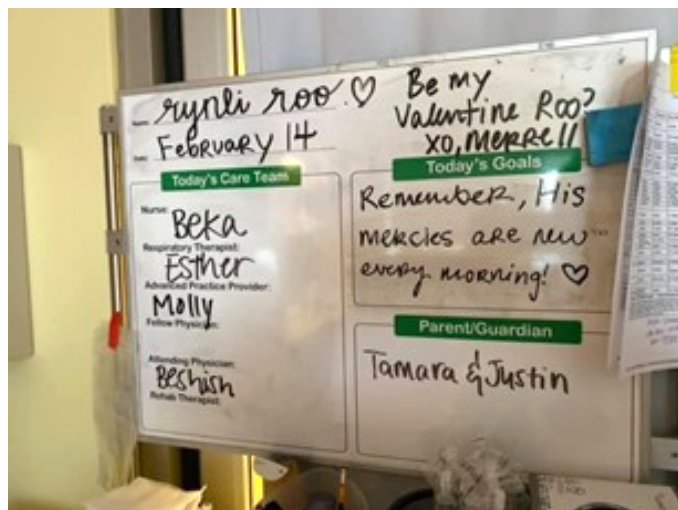 Name: rynli roo ♡
Date: February 14
Be my
Valentine Roo?
xo, Merrell
Today's Care Team
Nurse:
Beka
Respiratory Therapist:
Esther
Advanced Practice Provider:
Molly
Fellow Physician:
Attending Physician:
Beshish
Rehab Therapist:
Today's Goals
Remember, His
mercies are new
every morning! ♡
Parent/Guardian
Tamara & Justin